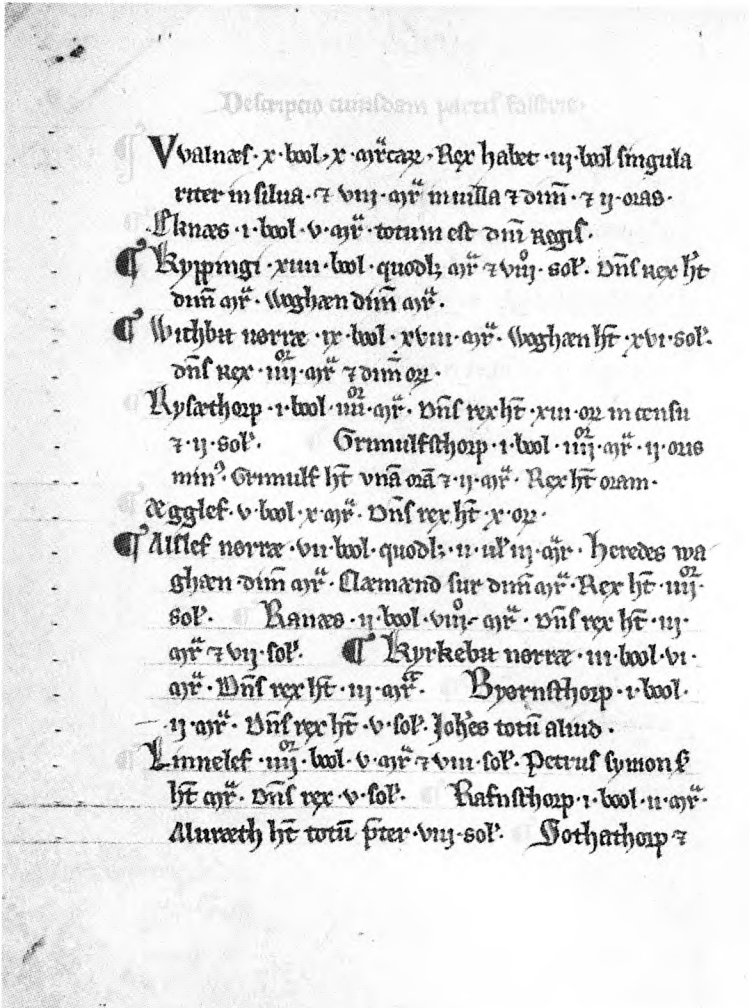 Descriptio cuiusdam partis falstriæ·
Vvalnæs·x·bool·x·mr̃carum·Rex habet·iii·bool singula
riter in silua·⁊ viii·mr̃ in uilla ⁊ dim̃·⁊ ij·oras·
Eknæs·i·bool·v·mr̃·totum est dñi regis·
¶ Kyppingi·xiiii·bool·quodlꝫ mr̃ ⁊ viii°·sol᷎·Dñs rex ħt
dim̃ mr̃·Woghæn dim̃ mr̃·
¶ Withbu nørræ·ix·bool·xviii·mr̃·Woghæn ħt·xvi·sol᷎·
dñs rex·iiijor·mr̃ ⁊ dim̃ orꝫ·
Rysæthorp·i·bool·iiijor·mr̃·Dñs rex ħt·xiii·orꝫ in censu
⁊·ij·sol᷎· Grimulfsthorp·i·bool·iiijor·mr̃·ij·oris
min᷒·Grimulf ħt vnã orã ⁊·ij·mr̃·Rex ħt oram·
Ægglef·v·bool·x·mr̃·Dñs rex ħt·x·orꝫ·
¶ Aislef nørræ·vii·bool·quodlꝫ·ii·uł iij·mr̃·heredes wa
ghæn dim̃ mr̃·Clæmænd sur dim̃ mr̃·Rex ħt·iiij·
sol᷎· Ranæs·ij·bool·viii°·mr̃·Dñs rex ħt·iij·
mr̃ ⁊ vij·sol᷎· ¶ Kyrkebu nørræ·iii·bool·vi·
mr̃·Dñs rex ħt·iij·mr̃k· Byørnsthorp·i·bool·
ij·mr̃·Dñs rex ħt·v·sol᷎·Joh̃es totũ aliud·
Linnelef·iiijor·bool·v·mr̃ ⁊ viii·sol᷎·Petrus symons
ħt mr̃·Dñs rex·v·sol᷎· Rafnsthorp·i·bool·ii·mr̃·
Aluræth ħt totũ p̃ter·viij·sol᷎· Sothathorp ⁊